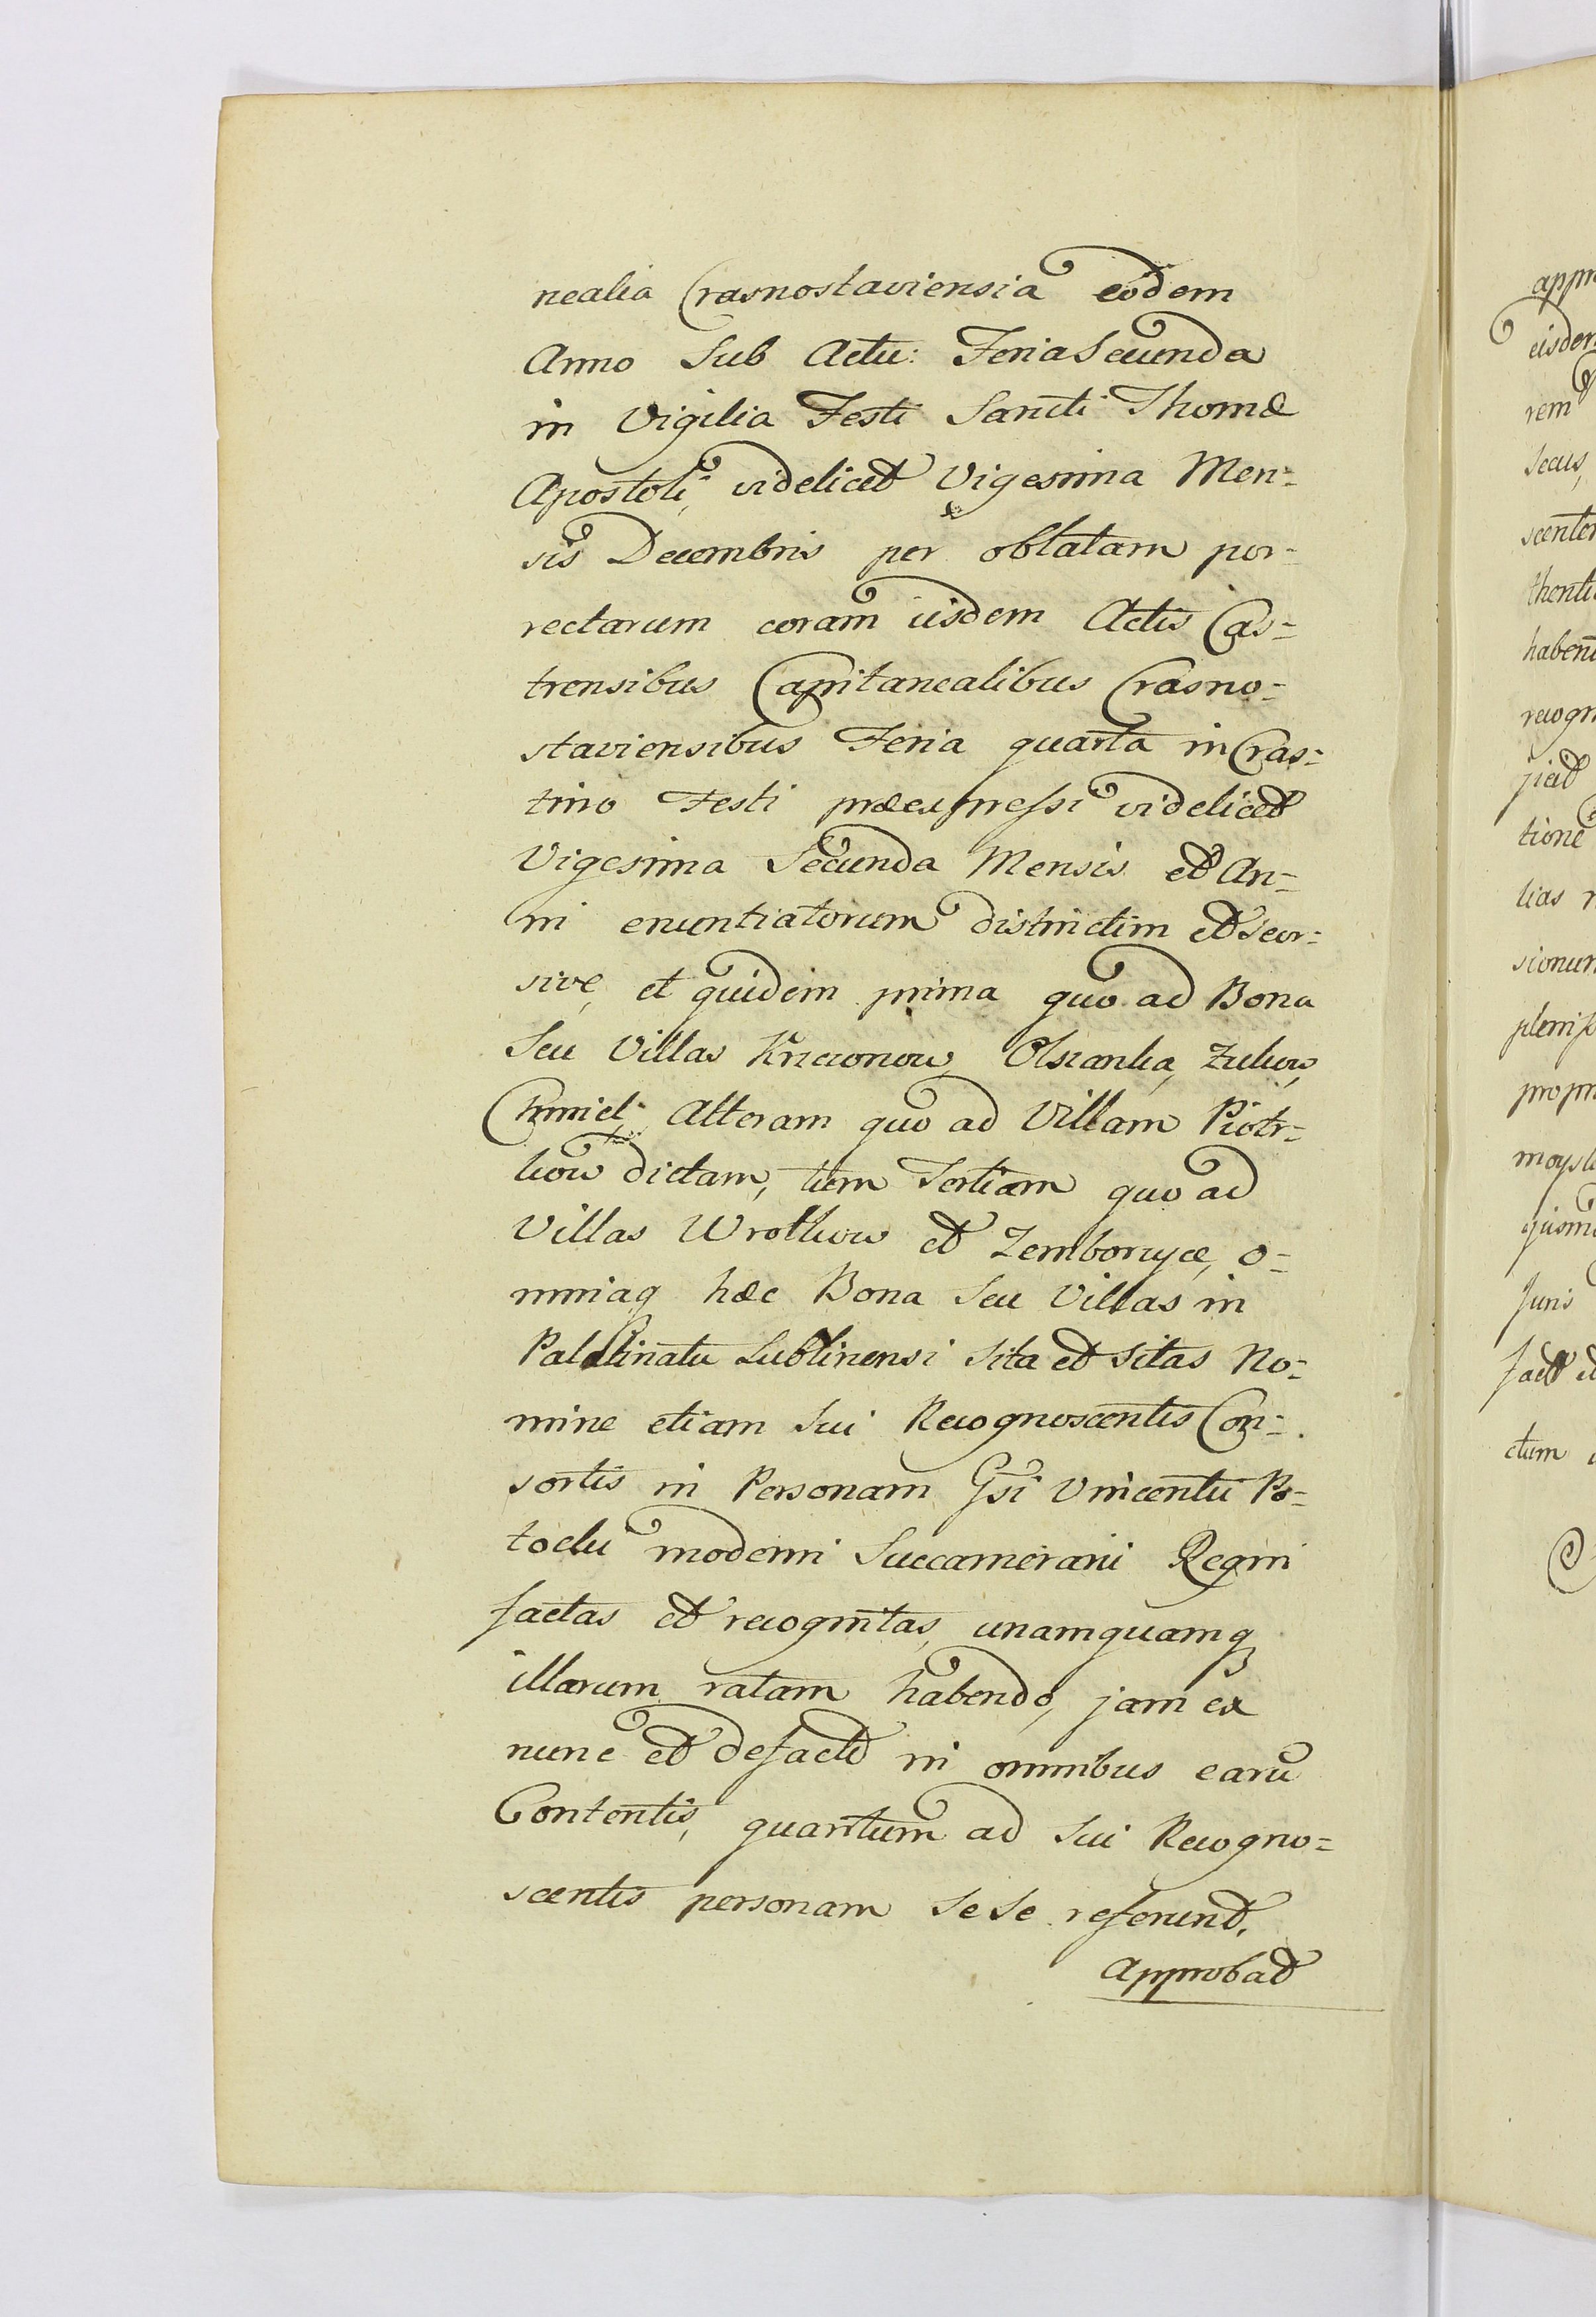 nealia Crasnostaviensia eodem
Anno Sub Actu: Feria Secunda
in Vigilia Festi Sancti Thomæ
Apostoli, videlicet Vigesima Men=
sis Decembris per oblatam por=
rectarum coram iisdem Actis Cas=
trensibus Capitanealibus Crasno=
staviensibus Feria quarta in Cras=
tino Festi præexpressi videlicet
Vigesima Secunda Mensis et An=
ni enuntiatorum distinctim et seor=
sive, et quidem prima quo ad Bona
Seu Villas Krzczonow, Olszanka, Zukow,
Chmiel; Alteram quo ad Villam Piotr=
kow dictam, tum Tertiam quo ad
Villas Wrotkow et Zemborzyce, o=
mniaq hæc Bona Seu Villas in
Palatinatu Lublinensi Sita et Sitas No=
mine etiam Sui Recognoscentis Con=
sortis in Personam Gsi Vincentii Po=
tocki moderni Succamerarii Regni
factas et recognitas, unamquamq
illarum ratam habendo, jam ex
nunc et defacto in omnibus earū
Contentis, quantum ad Sui Recogno=
scentis personam Se Se referunt,
Approbat
eisdem
rem
Secus,
tione
lias
Juris
ctum